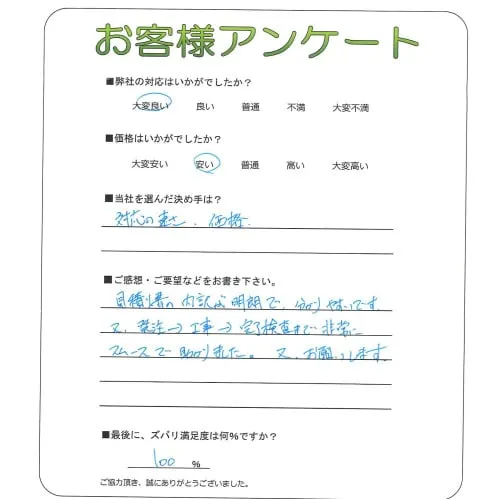 お客様アンケート
■弊社の対応はいかがでしたか？
大変良い 良い 普通 不満 大変不満
■価格はいかがでしたか？
大変安い 安い 普通 高い 大変高い
■当社を選んだ決め手は？
対応の速さ、価格
■ご感想・ご要望などをお書き下さい。
見積書の内訳が明朗で、分かりやすいです
又、発注→工事→完了検査まで非常に
スムーズで助かりました。又、お願いします。
■最後に、ズバリ満足度は何%ですか？
100 %
ご協力頂き、誠にありがとうございました。